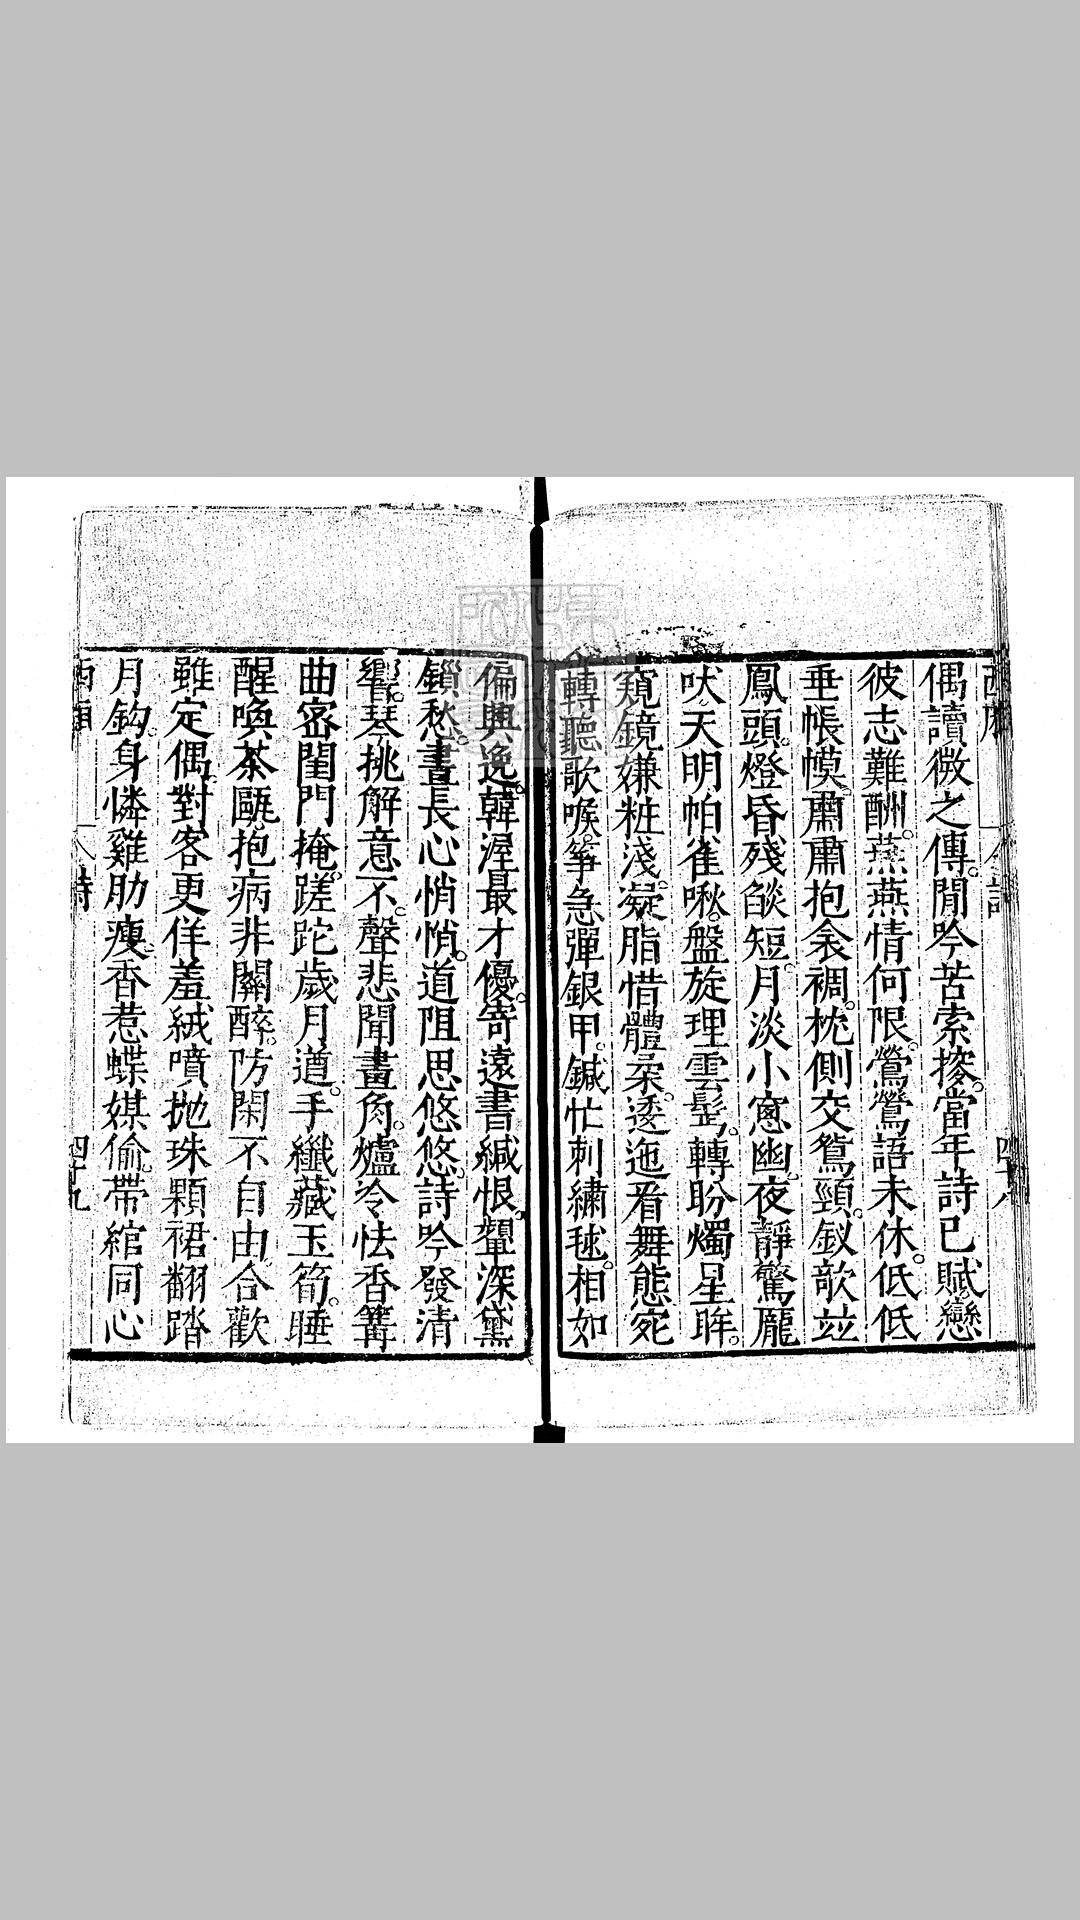 偶讀微之傳。閒吟苦索搜。當年詩已賦。戀
彼志難酬。燕燕情何限。鶯鶯語未休。低低
垂帳幙。肅肅抱衾裯。枕側交鴛頸。釵欹並
鳳頭。燈昏殘燄短。月淡小窻幽。夜靜驚厖
吠。天明怕雀啾。盤旋理雲髩。轉盼燭星眸。
窺鏡嫌粧淺。凝脂惜體柔。逶迤看舞態。宛
轉聽歌喉。箏急彈銀甲。鍼忙刺繡毬。相如
偏興逸。韓渥最才優。寄遠書緘恨。顰深黛
鎖愁。晝長心悄悄。道阻思悠悠。詩吟發清
響。琴挑解意不。聲悲聞畫角。爐冷怯香篝
曲密閨門掩。蹉跎歲月遒。手纖藏玉筍。睡
醒喚茶甌。抱病非關醉。防閑不自由。合歡
雖定偶。對客更佯羞。絨噴拋珠顆。裙翻踏
月鈎。身憐雞肋瘦。香惹蝶媒偷。帶綰同心
四十九